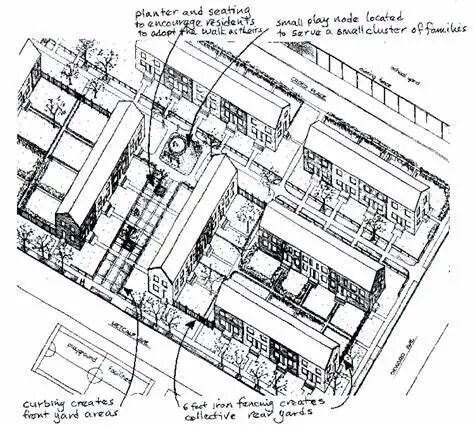 planter and seating
to encourage residents
to adopt the walk as theirs
small play node located
to serve a small cluster of families
school yard
playground
curbing creates
front yard areas
6 foot iron fencing creates
collective rear yards